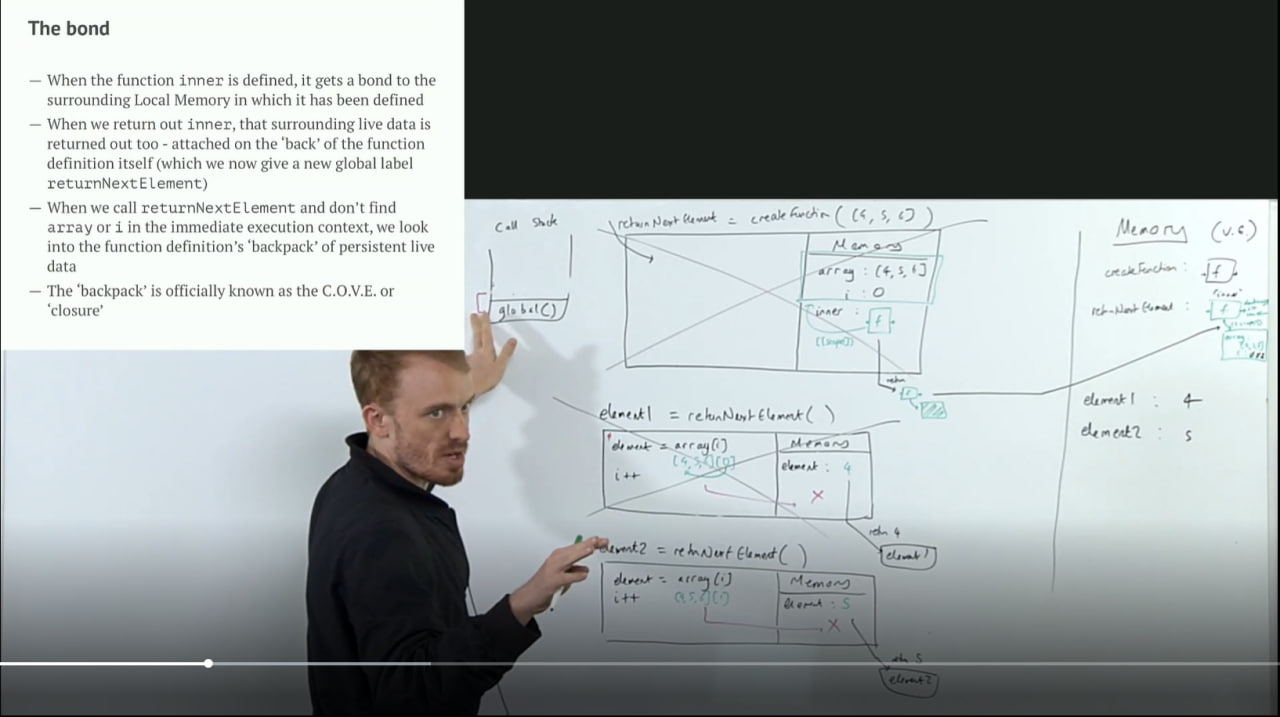 The bond
— When the function inner is defined, it gets a bond to the
surrounding Local Memory in which it has been defined
— When we return out inner, that surrounding live data is
returned out too - attached on the ‘back’ of the function
definition itself (which we now give a new global label
returnNextElement)
— When we call returnNextElement and don’t find
array or i in the immediate execution context, we look
into the function definition’s ‘backpack’ of persistent live
data
— The ‘backpack’ is officially known as the C.O.V.E. or
‘closure’
Call Stack
global()
returnNextElement = createFunction([4, 5, 6])
Memory
array : [4, 5, 6]
i : 0
inner : f
[[scope]]
retn
element1 = returnNextElement( )
element = array[i]
[4,5,6][0]
i++
Memory
element : 4
×
retn 4
element1
element2 = retnNextElement( )
element = array[i]
i++ [4,5,6][1]
Memory
element : 5
×
retn 5
element2
Memory (V.E.)
createFunction : f
"inner"
retnNextElement : f
array
element1 : 4
element2 : 5